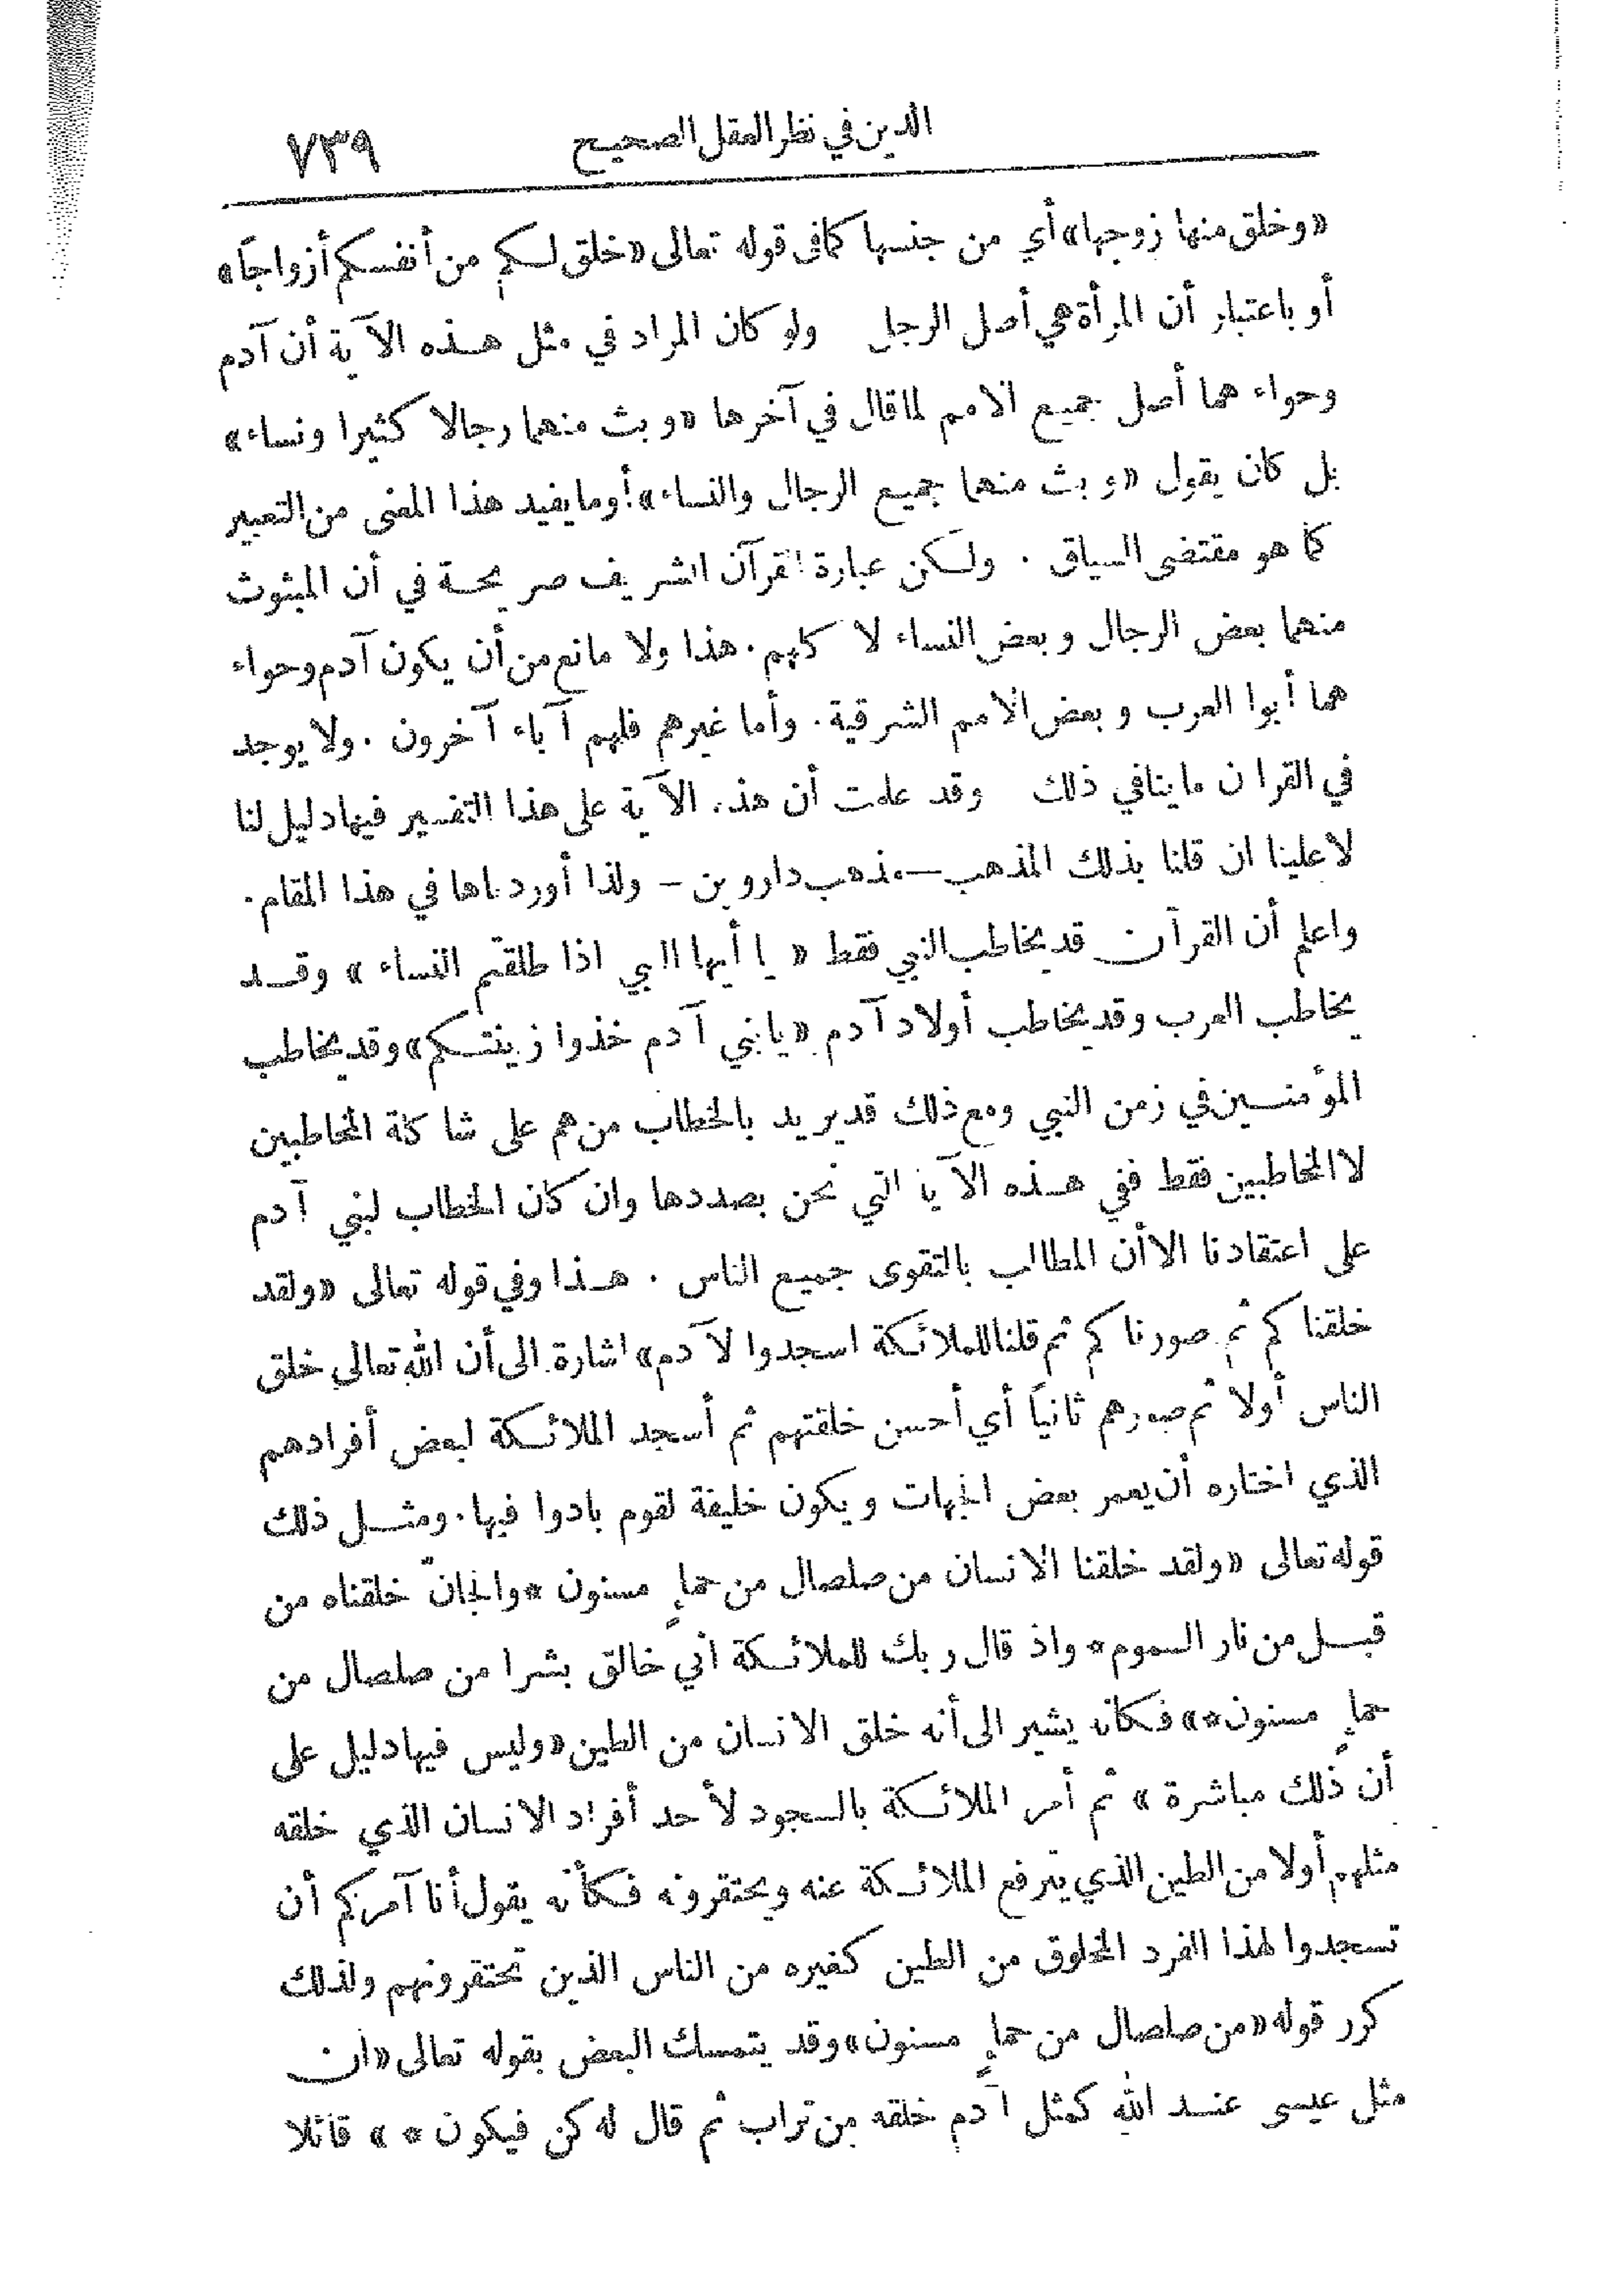 الدين في نظر العقل الصحيح ٧٣٩
«وخلق منها زوجها» أي من جنسها كما في قوله تعالى «خلق لكم من أنفسكم أزواجًا»
أو باعتبار أن المرأة هي أصل الرجل ولو كان المراد في مثل هذه الآية أن آدم
وحواء هما أصل جميع الامم لما قال في آخرها «وبث منهما رجالا كثيرا ونساء»
بل كان يقول «وبث منهما جميع الرجال والنساء» أو ما يفيد هذا المعنى من التعبير
كما هو مقتضى السياق . ولكن عبارة القرآن الشريف صريحة في أن المبثوث
منهما بعض الرجال وبعض النساء لا كلهم . هذا ولا مانع من أن يكون آدم وحواء
هما أبوا العرب وبعض الامم الشرقية . وأما غيرهم فلهم آباء آخرون . ولا يوجد
في القرآن ما ينافي ذلك وقد علمت أن هذه الآية على هذا التفسير فيها دليل لنا
لا علينا ان قلنا بذلك المذهب — مذهب داروين — ولذا أوردناها في هذا المقام .
واعلم أن القرآن قد يخاطب النبي فقط « يا أيها النبي اذا طلقتم النساء » وقد
يخاطب العرب وقد يخاطب أولاد آدم «يا بني آدم خذوا زينتكم» وقد يخاطب
المؤمنين في زمن النبي ومع ذلك قد يريد بالخطاب من هم على شاكلة المخاطبين
لا المخاطبين فقط ففي هذه الآيا التي نحن بصددها وان كان الخطاب لبني آدم
على اعتقادنا الا أن المطالب بالتقوى جميع الناس . هذا وفي قوله تعالى «ولقد
خلقناكم ثم صورناكم ثم قلنا للملائكة اسجدوا لآدم» اشارة الى أن الله تعالى خلق
الناس أولا ثم صورهم ثانيًا أي أحسن خلقتهم ثم أسجد الملائكة لبعض أفرادهم
الذي اختاره أن يعمر بعض الجهات ويكون خليفة لقوم بادوا فيها . ومثل ذلك
قوله تعالى «ولقد خلقنا الانسان من صلصال من حمإٍ مسنون * والجانّ خلقناه من
قبل من نار السموم * واذ قال ربك للملائكة اني خالق بشرا من صلصال من
حمإٍ مسنون *» فكأنه يشير الى أنه خلق الانسان من الطين «وليس فيها دليل على
أن ذلك مباشرة » ثم أمر الملائكة بالسجود لأحد أفراد الانسان الذي خلقه
مثلهم أولا من الطين الذي يترفع الملائكة عنه ويحتقرونه فكأنه يقول أنا آمركم أن
تسجدوا لهذا الفرد المخلوق من الطين كغيره من الناس الذين تحتقرونهم ولذلك
كرر قوله «من صلصال من حمإٍ مسنون» وقد يتمسك البعض بقوله تعالى «ان
مثل عيسى عند الله كمثل آدم خلقه من تراب ثم قال له كن فيكون * » قائلا